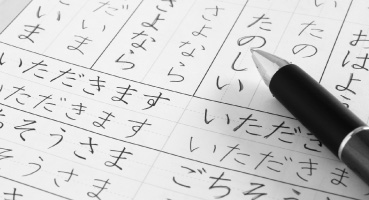 おはよ
たの
たのしい
さよなら
さよなら
いま
いま
いただきます
いただきます
いただき
いただきま
ちそうさま
そうさま
ごちそう